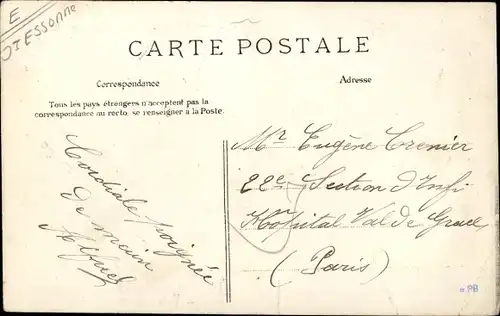 E
ST ESSONNE
CARTE POSTALE
Correspondance
Adresse
Tous les pays étrangers n'acceptent pas la
correspondance au recto, se renseigner à la Poste.
Cordiale poignée
de main
Mr Eugène Crenier
22e Section d'Infi
Hôpital Val de Grace
(Paris)
PB